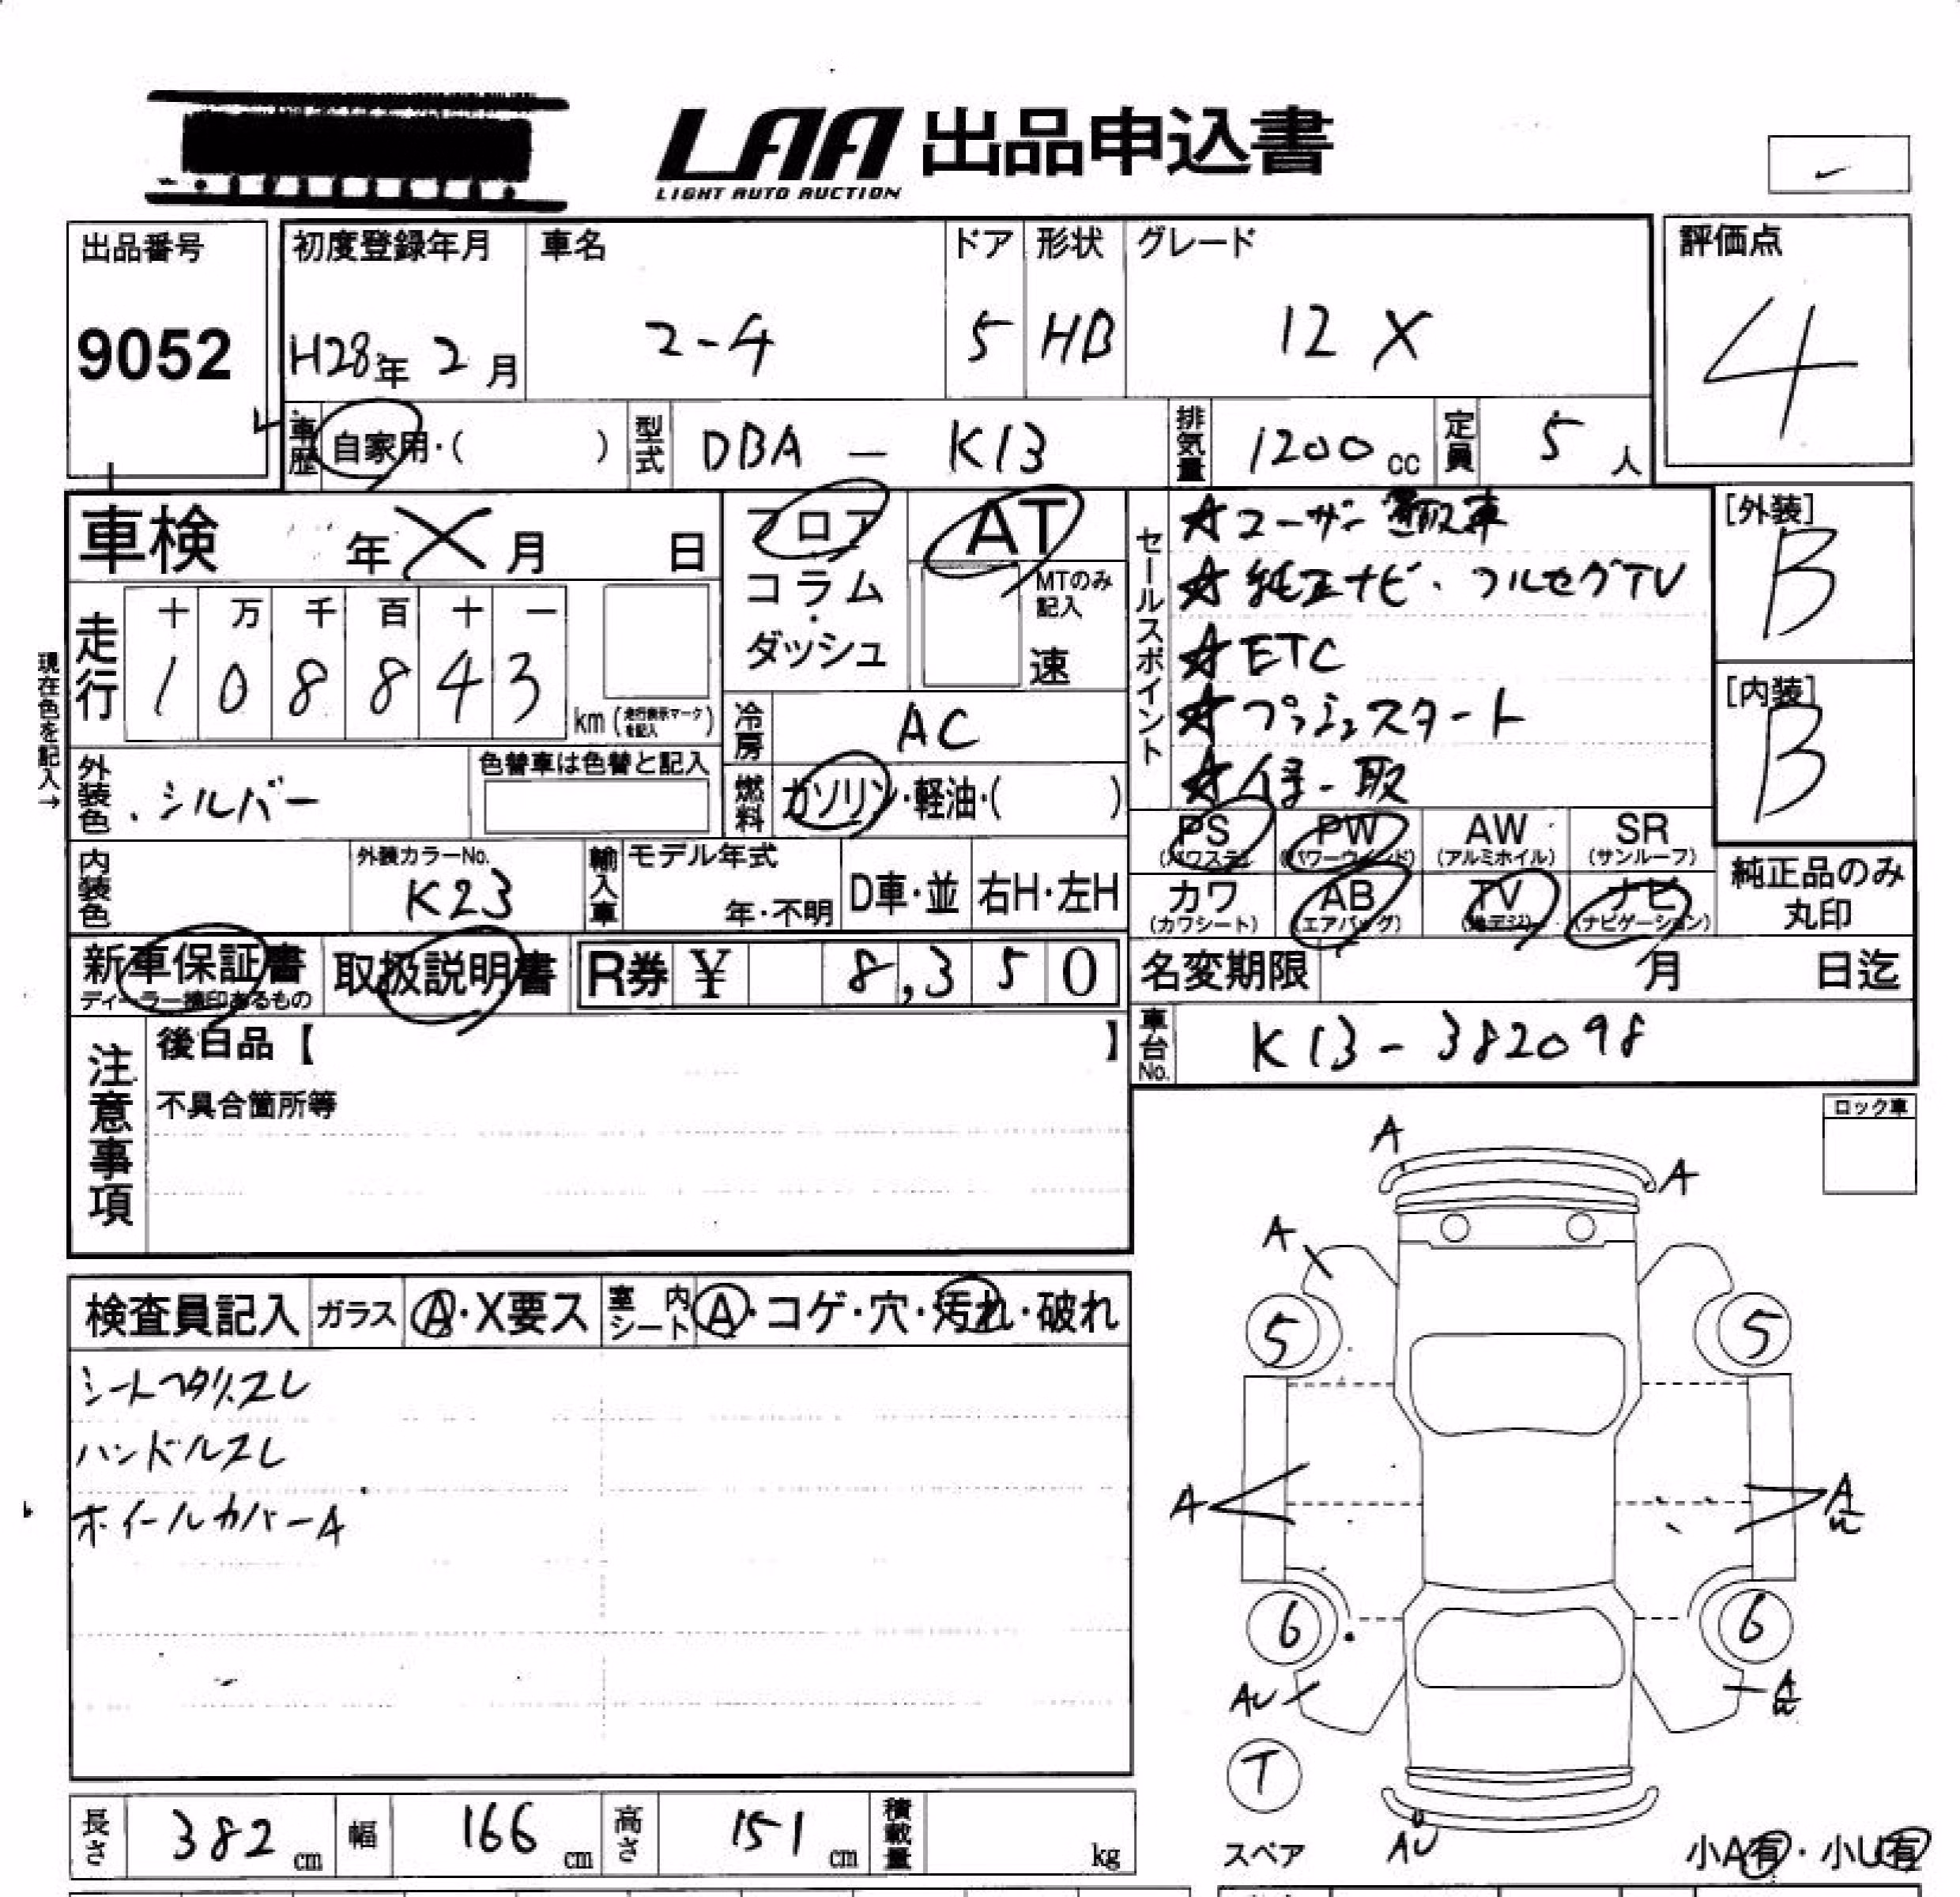 LAA 出品申込書
LIGHT AUTO AUCTION
出品番号 初度登録年月 車名 ドア 形状 グレード 評価点
9052 H28年 2月 マーチ 5 HB 12 X 4
車歴 自家用・( ) 型式 DBA - K13 排気量 1200 cc 定員 5 人
車検 年 X 月 日 フロア AT
コラム・ダッシュ MTのみ記入 速
セールスポイント
★ユーザー買取車
★純正ナビ・フルセグTV
★ETC
★プッシュスタート
★保・取
[外装]
B
[内装]
B
現在色を記入→
走行 十 万 千 百 十 一
1 0 8 8 4 3 km (走行表示マークを記入)
冷房 AC
外装色 シルバー 色替車は色替と記入
燃料 ガソリン・軽油・( )
PS (パワステ) PW (パワーウィンド) AW (アルミホイル) SR (サンルーフ)
カワ (カワシート) AB (エアバッグ) TV (地デジ) ナビ (ナビゲーション)
純正品のみ
丸印
内装色 外装カラーNo. K23 輸入車 モデル年式 年・不明 D車・並 右H・左H
新車保証書 取扱説明書 R券 ¥ 8,350
ディーラー捺印あるもの
名変期限 月 日迄
車台No. K13-382098
注意事項 後日品【 】
不具合箇所等
ロック車
A
A
A
検査員記入 ガラス A・X要ス 室内シート A・コゲ・穴・汚れ・破れ
5 5
シートヘタリ、スレ
ハンドルスレ
ホイールカバーA
A A
6 6
AU
T
スペア AU 小A有・小U有
長さ 382 cm 幅 166 cm 高さ 151 cm 積載量 kg